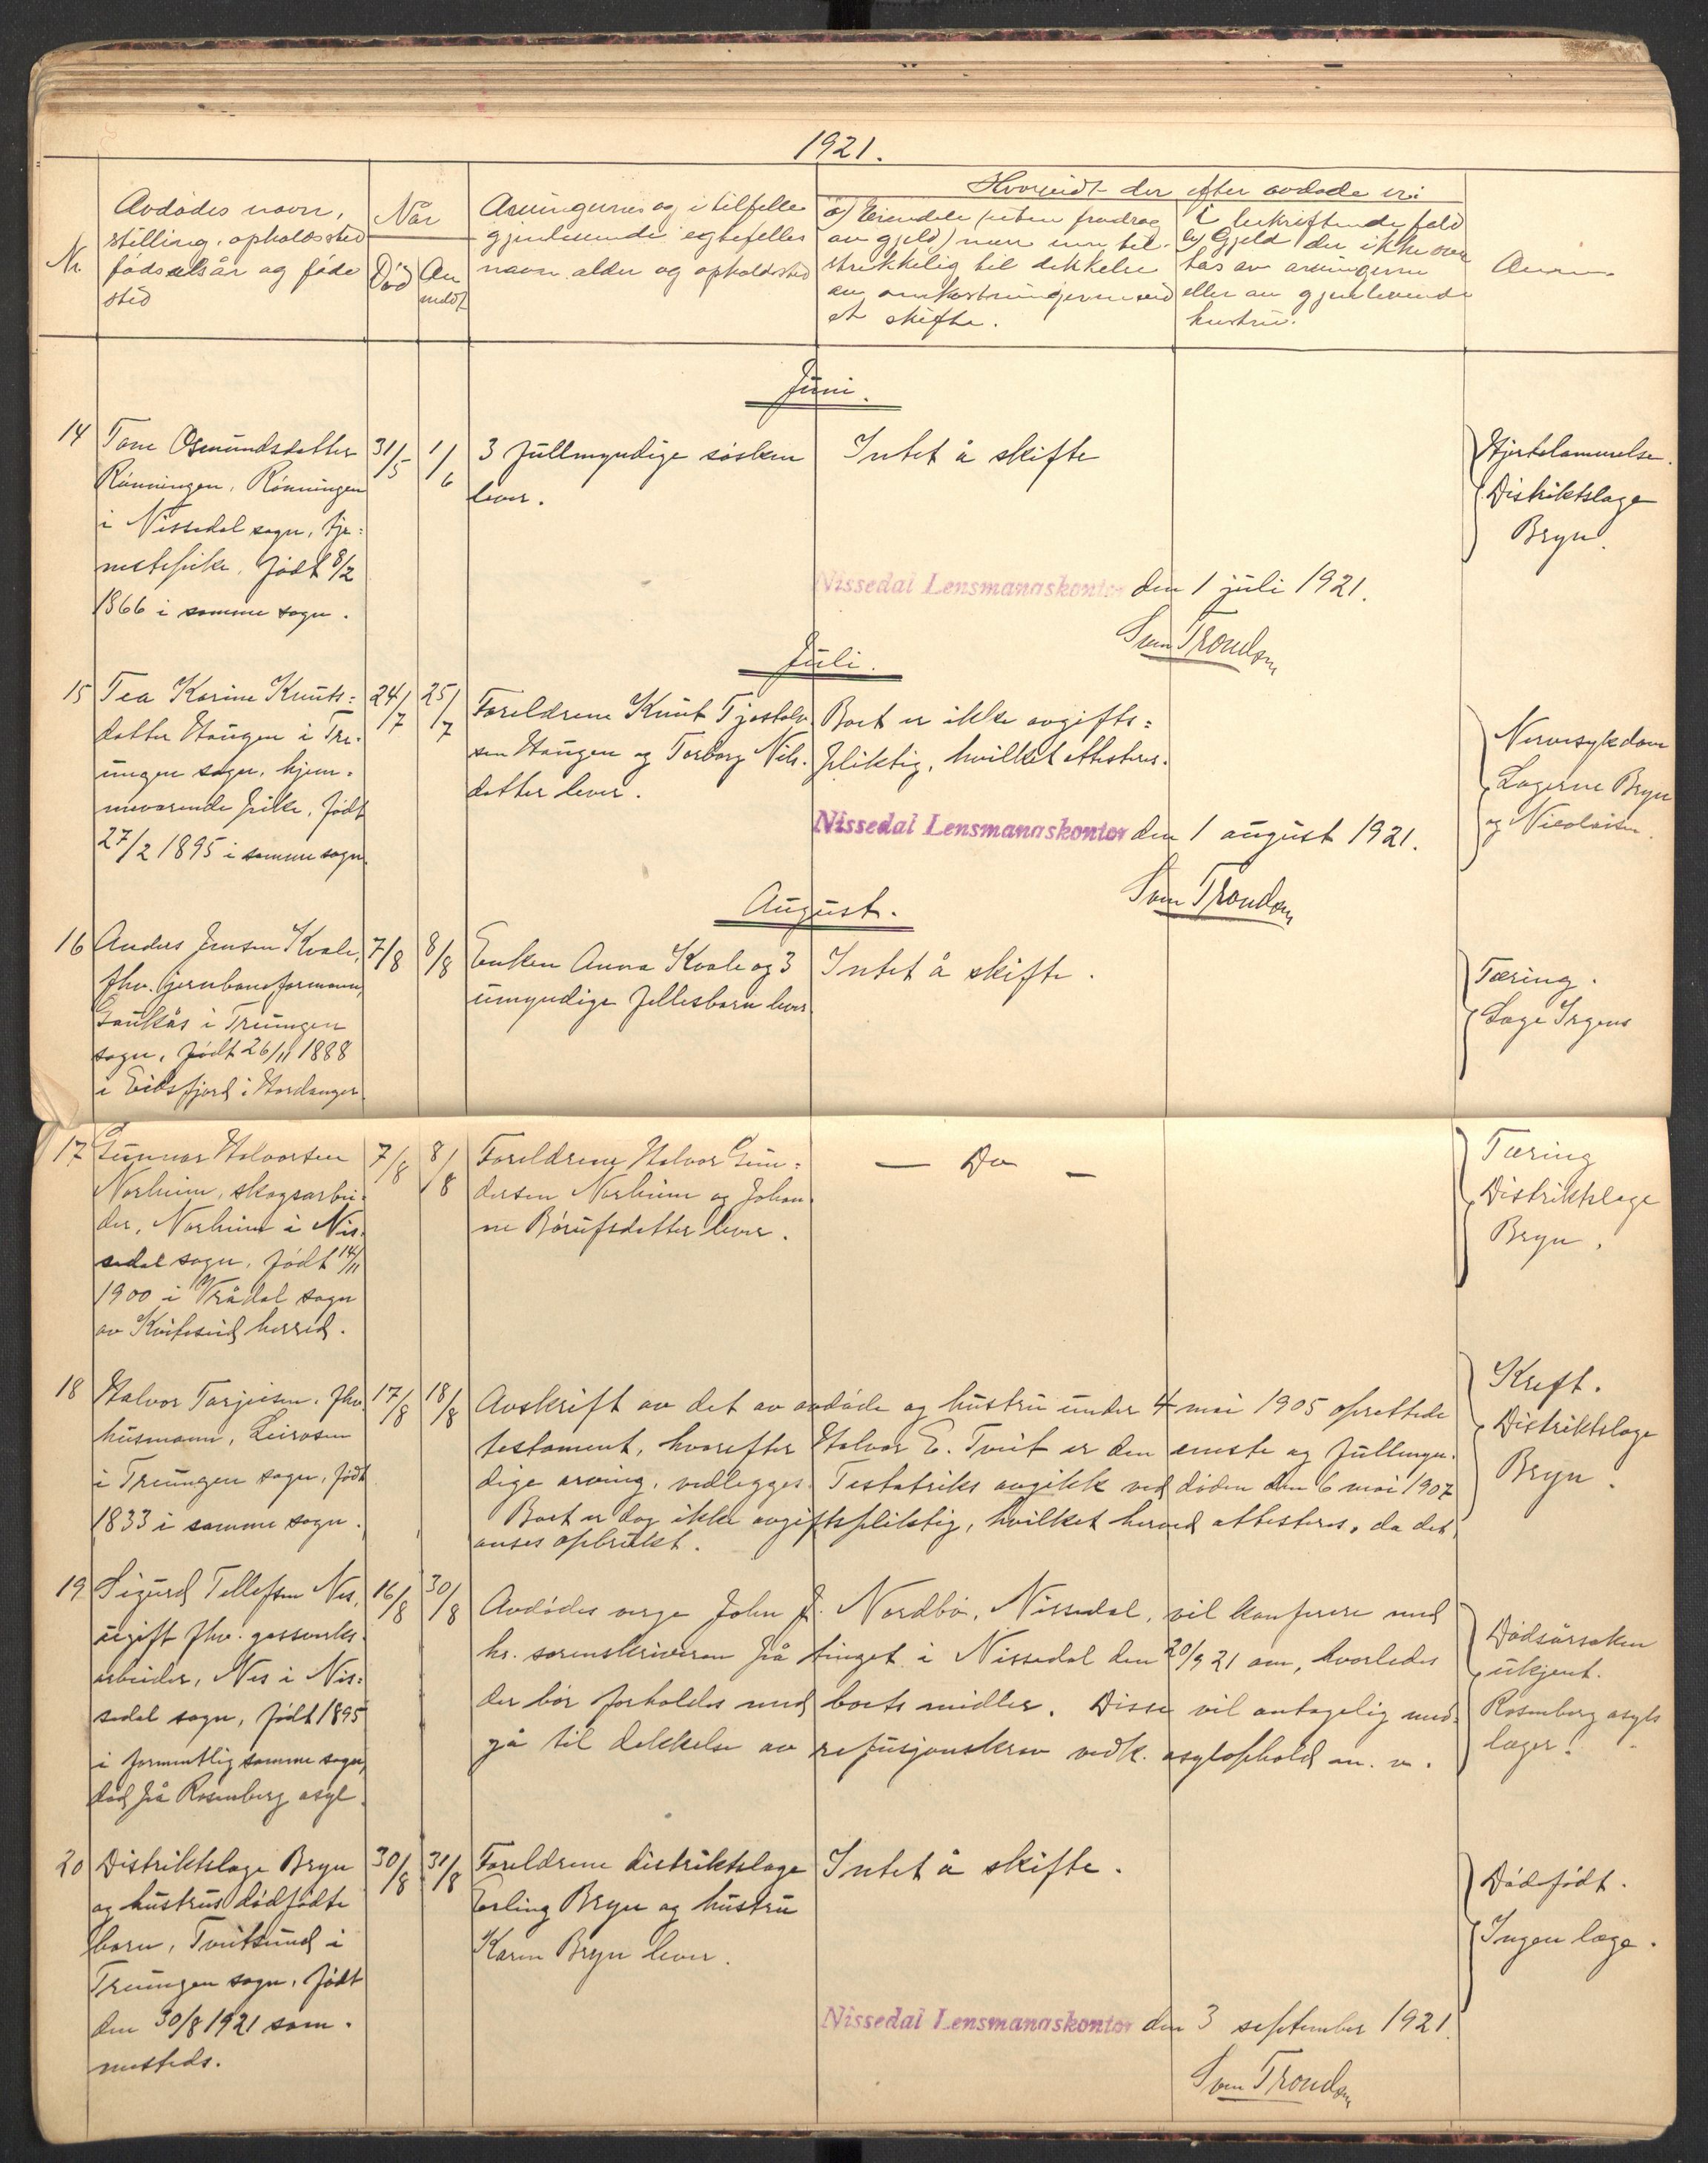 1921.
Nr.
Avdødes navn,
stilling, opholdssted
fødselsår og føde
sted
Når
Død
An
meldt
Arvingernes og i tilfelle
gjenlevende egtefelles
navn alder og opholdssted
Hvorvidt der efter avdøde er:
a) Eiendele (uten fradrag
av gjeld) mere enn til-
strekkelig til dekkelse
av omkostningerne ved
et skifte.
I bekreftende fald
b) Gjeld der ikke over
tas av arvingerne
eller av gjenlevende
hustru.
Anm.
Juni.
14
Tone Osmundsdatter
Rønningen, Rønningen
i Nissedal sogn, tje=
nestepike. Født 8/2
1866 i samme sogn.
31/5
1/6
3 fullmyndige søsken
lever.
Intet å skifte
Hjertelammelse.
Distriktslæge
Bryn.
Nissedal Lensmannskontor den 1 juli 1921.
Sven Trondsen
Juli.
15
Tea Karine Knuts=
datter Haugen i Tre-
ungen sogn, hjem=
meværende pike, født
27/2 1895 i samme sogn.
24/7
25/7
Foreldrene Knut Tjostolv-
sen Haugen og Torborg Nils-
datter lever.
Boet er ikke avgifts=
pliktig, hvilket attesteres.
Nervesykdom
Lægerne Bryn
og Nicolaisen.
Nissedal Lensmannskontor den 1 august 1921.
Sven Trondsen
August.
16
Anders Jensen Kvale,
fhv. jernbaneformann,
Gaukås i Treungen
sogn, født 26/11 1888
i Eidsfjord i Hardanger.
7/8
8/8
Enken Anna Kvale og 3
umyndige fellesbarn lever.
Intet å skifte.
Tæring.
Læge Irgens
17
Gunnar Halvorsen
Norheim, skogsarbei=
der, Norheim i Nis-
sedal sogn, født 14/11
1900 i Vrådal sogn
av Kviteseid herred.
7/8
8/8
Foreldrene Halvor Gun=
dersen Norheim og Johan-
ne Børufsdatter lever.
— Do —
Tæring
Distriktslæge
Bryn.
18
Halvor Tarjeisen, fhv.
husmann, Leirosen
i Treungen sogn, født
1833 i samme sogn.
17/8
18/8
Avskrift av det av avdøde og hustru under 4 mai 1905 oprettede
testament, hvorefter Halvor E. Tveit er den eneste og fullmyn-
dige arving, vedlegges. Testatriks avgikk ved døden den 6 mai 1907
Boet er dog ikke avgiftspliktig, hvilket herved attesteres, da det
anses opbrukt.
Kreft.
Distriktslæge
Bryn.
19
Sigurd Tellefsen Nes,
ugift fhv. gassverks-
arbeider, Nes i Nis=
sedal sogn, født 1895
i formentlig samme sogn,
død på Rosenberg asyl.
16/8
30/8
Avdødes verge John J. Nordbø, Nissedal, vil konferere med
hr. sorenskriveren på tinget i Nissedal den 20/9 21 om, hvorledes
der bør forholdes med boets midler. Disse vil antagelig med-
gå til dekkelse av refusjonskrav vedk. asylophold m. v.
Dødsårsaken
ukjent.
Rosenberg asyls
læger.
20
Distriktslæge Bryn
og hustrus dødfødte
barn, Tveitsund i
Treungen sogn, født
den 30/8 1921 sam-
mesteds.
30/8
31/8
Foreldrene distriktslæge
Erling Bryn og hustru
Karen Bryn lever.
Intet å skifte.
Dødfødt.
Ingen læge.
Nissedal Lensmannskontor den 3 september 1921.
Sven Trondsen